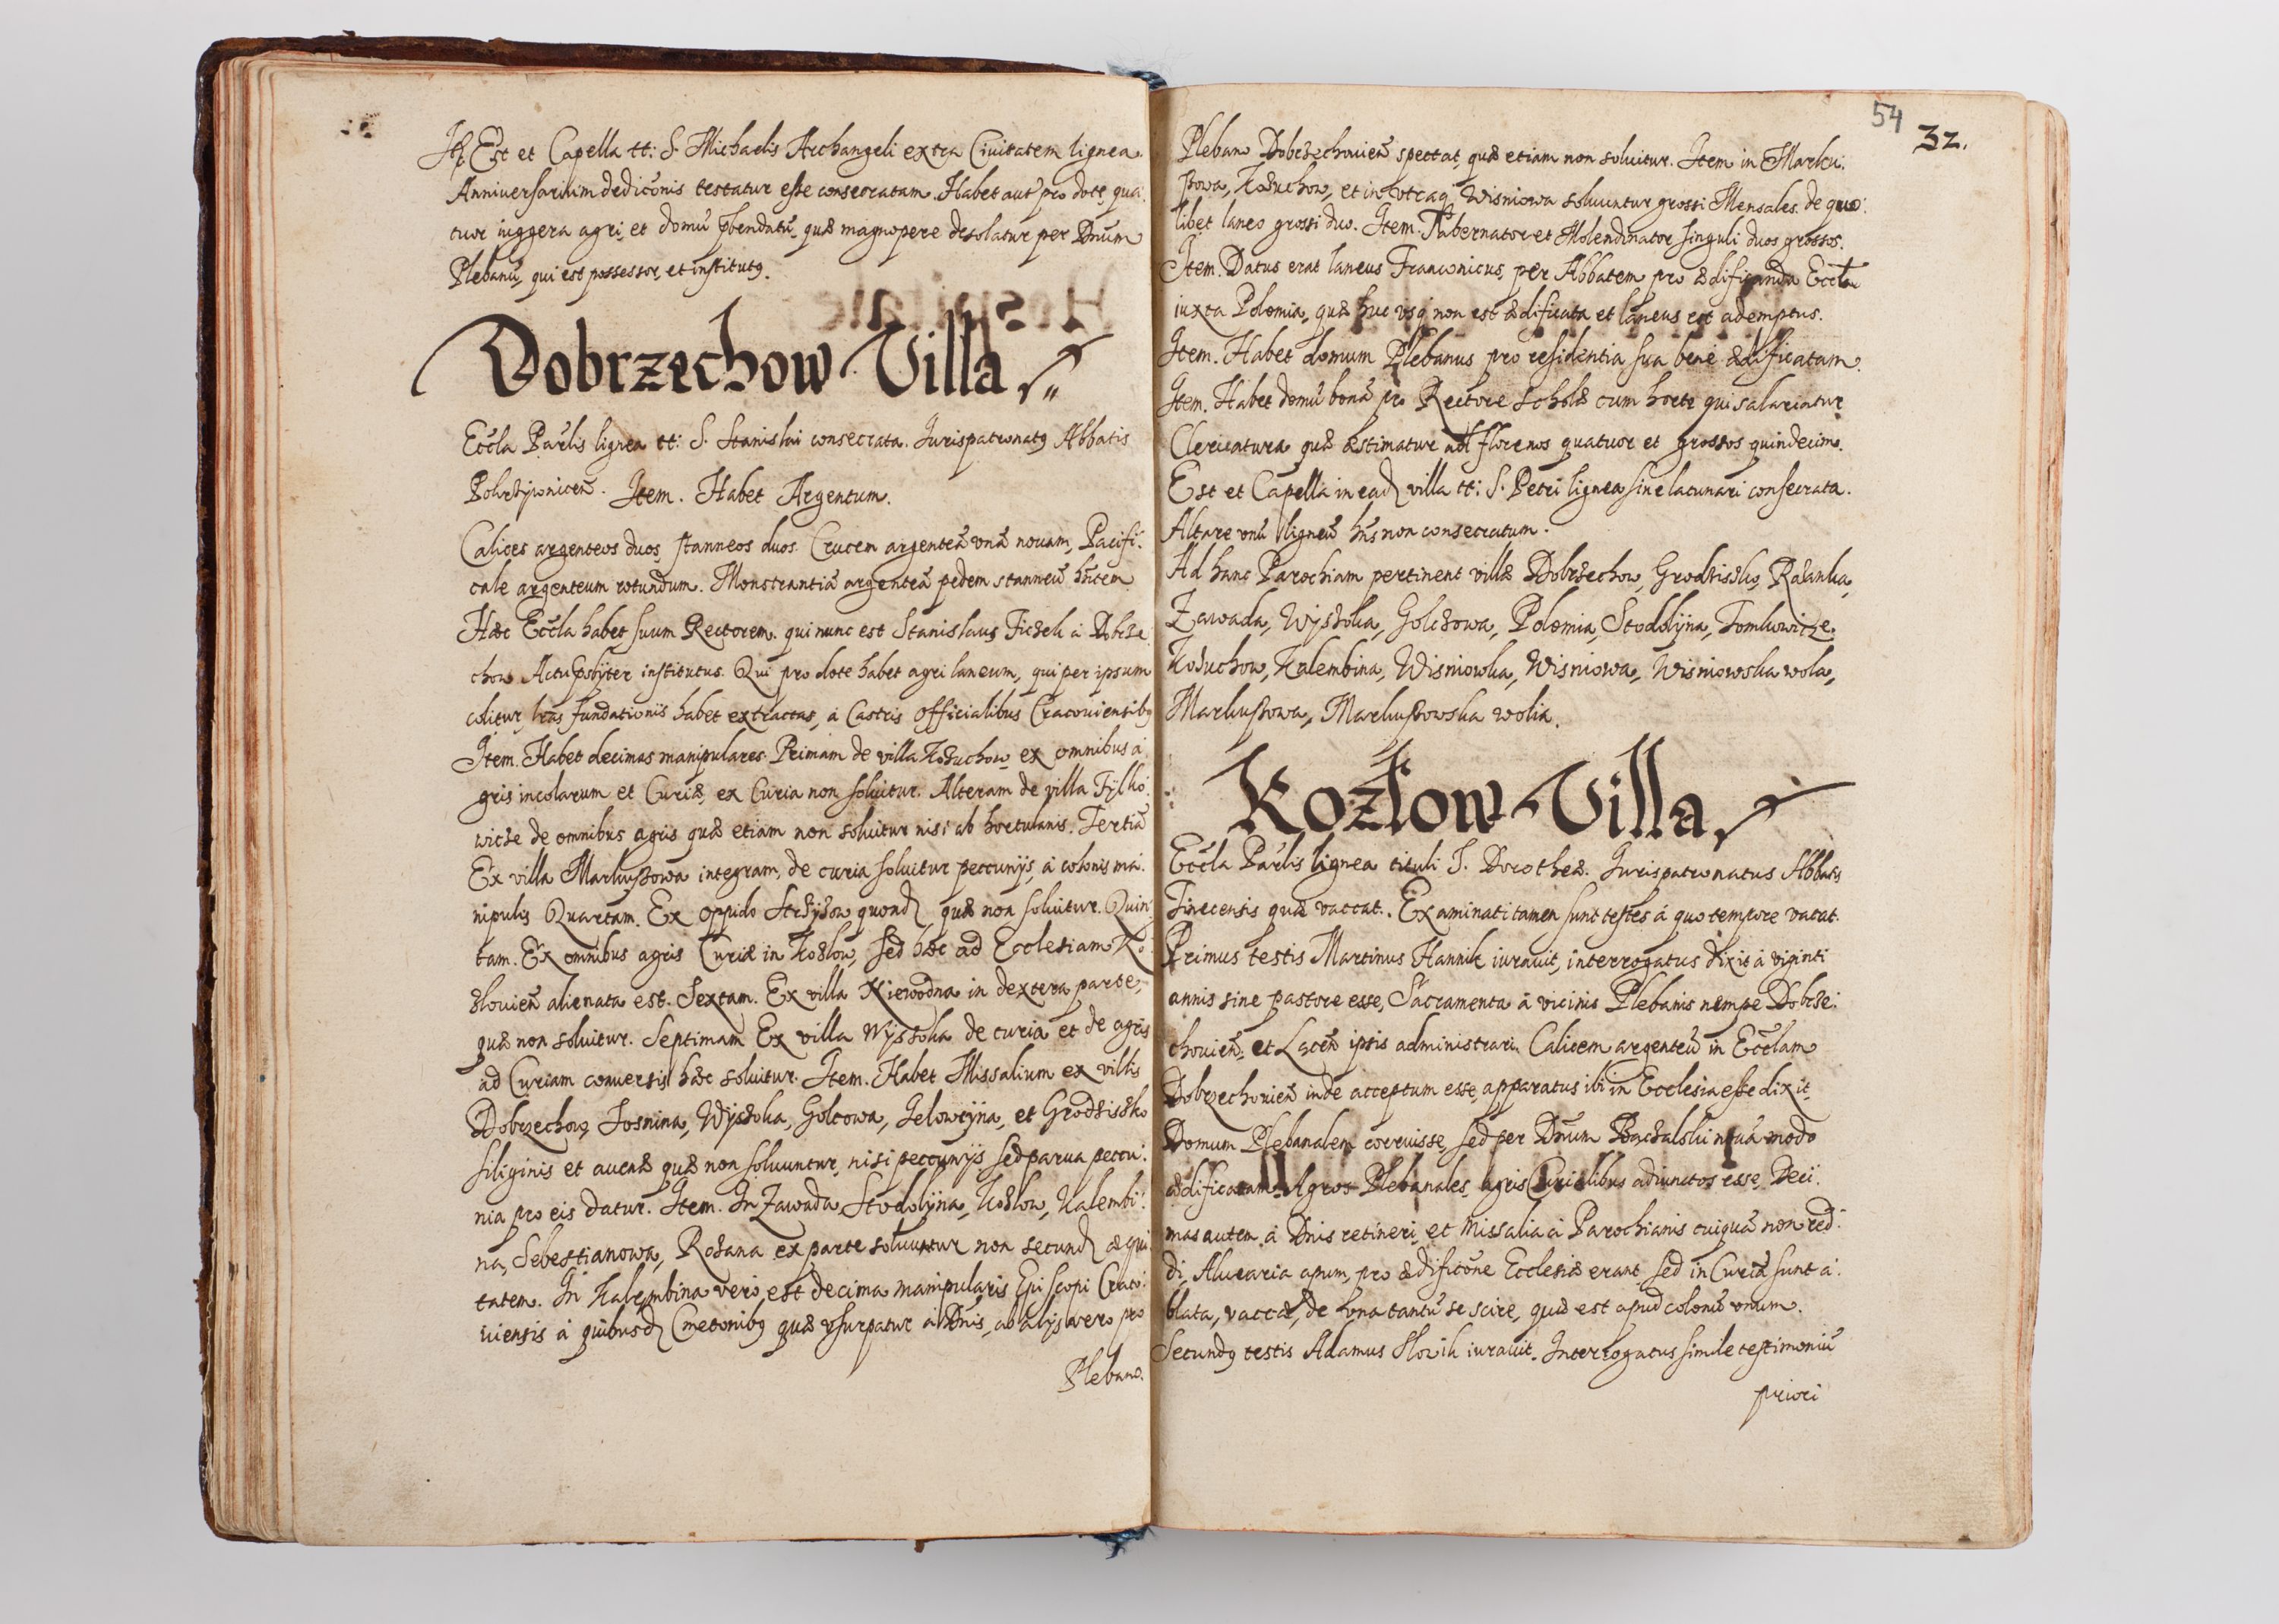 Est et Capella tt: S. Michaelis Archangeli extra Ciuitatem lignea.
Anniuersarium dedicõnis testatur esse consecratam. Habet aut pro dote, qua:
tuor iuggera agri, et domũ pbendatũ, quæ magnopere desolatur per Dnum
Plebanũ, qui est possessor, et institutꝯ.
Dobrzechow Villa
Eccla Parlis lignea tt: S. Stanislai consecrata. Jurispatronatꝯ Abbatis
Item. Habet Argentum.
Calices argenteos duos, stanneos duos. Crucem argenteã vnã nouam, Pacifi:
cale argenteum rotundum. Monstrantiã argenteã pedem stanneũ hñtem
Hæc Eccla habet suum Rectorem. qui nunc est Stanislaus Ficzek à Dobrze
chow Actu psbyter institutus. Qui pro dote habet agri laneum, qui per ipsum
colitur, lras fundationis habet extractas, à Castris Officialibus Cracouiensibꝯ
Item. Habet decimas manipulares. Primam de villa Kożuchow ex omnibus a
gris incolarum et Curiæ, ex Curia non soluitur. Alteram de villa Tylko:
wicze de omnibus agris quæ etiam non soluitur nisi ab hortulanis. Tertiã
Ex villa Markuszowa integram, de curia soluitur peccunijs, à colonis ma:
nipulis Quartam. Ex oppido Strzyżow quond quæ non soluitur. Quin:
tam. Ex omnibus agris Curiæ in Kozlow, sed hæc ad Ecclesiam Ko:
zlouien̄ alienata est. Sextam. Ex villa Niewodna in dextera parte,
quæ non soluitur. Septimam Ex villa Wyssoka de curia et de agris
ad Curiam conuersis hæc soluitur. Item. Habet Missalium ex villis
Dobrzechow, Tosnina, Wyszoka, Golcowa, Jelowcyna, et Grodzisko
siliginis et auenæ quæ non soluuntur, nisi peccunijs sed parua peccu:
nia pro eis datur. Item. In Zawada, Stodolyna, Kozlow, Kalembi:
na, Sebestianowa, Rożana ex parte soluuntur non secund æqui
tatem. In Kalembina vero, est decima manipularis Episcopi Craco:
uiensis à quibusd Cmetonibꝯ quæ vsurpatur à Dnis, ab alijs vero pro
Plebano.
54
32.
Plebano Dobrzechouien̄ spectat, quæ etiam non soluitur. Item in Marku:
szowa, Kożuchow, et in vtraq Wisniowa soluuntur grossi Mensales. de quo:
libet laneo grossi duo. Item. Tabernator et Molendinator singuli duos grossos.
Item. Datus erat laneus Franconicus, per Abbatem pro ædificanda Eccla
iuxta Polomia, quæ huc vsq non est ædificata et laneus est ademptus.
Item. Habet domum Plebanus pro residentia sua bene ædificatam.
Item. Habet domũ bonã pro Rectore Scholæ cum horto qui salariatur
Clericatura quæ æstimatur ad florenos quatuor et grossos quindecim.
Est et Capella in ead villa tt: S. Petri lignea sine lacunari consecrata.
Altare vnũ ligneũ hñs non consecratum.
Ad hanc Parochiam pertinent villæ Dobrzechow, Grodzisko, Rżanka,
Zawada, Wyszoka, Golczowa, Polomia, Stodolyna, Tomkowicze,
Kożuchow, Kalembina, Wisniowka, Wisniowa, Wisniowska wola,
Markuszowa, Markuszowska wolia.
Kozłow Villa
Eccla Parlis lignea tituli S. Dorotheæ. Jurispatronatus Abbatis
Tinecensis quæ vaccat. Examinati tamen sunt testes à quo tempore vacat.
Primus testis Martinus Hannik iurauit, interrogatus dixit à viginti
annis sine pastore esse, Sacramenta à vicinis Plebanis nempe Dobrze:
chouien̄, et Lącen̄ ipsis administrari. Calicem argenteũ in Ecclam
Dobrzechouien̄ inde acceptum esse, apparatus ibi in Ecclesia esse dixit.
Domum Plebanalem corruisse, sed per Dnum Baczalski nouã modo
ædificatam. Agros Plebanales, agris Curialibus adiunctos esse, Deci:
mas autem à Dnis retineri, et Missalia à Parochianis cuiquã non red:
di, Aluearia apum, pro ædificõne Ecclesiæ erant sed in Curiã sunt a:
blata, vaccæ, de vna tantũ se scire, quæ est apud colonũ vnum.
Secundꝯ testis Adamus Slowik iurauit. Interrogatus simile testimoniũ
priori